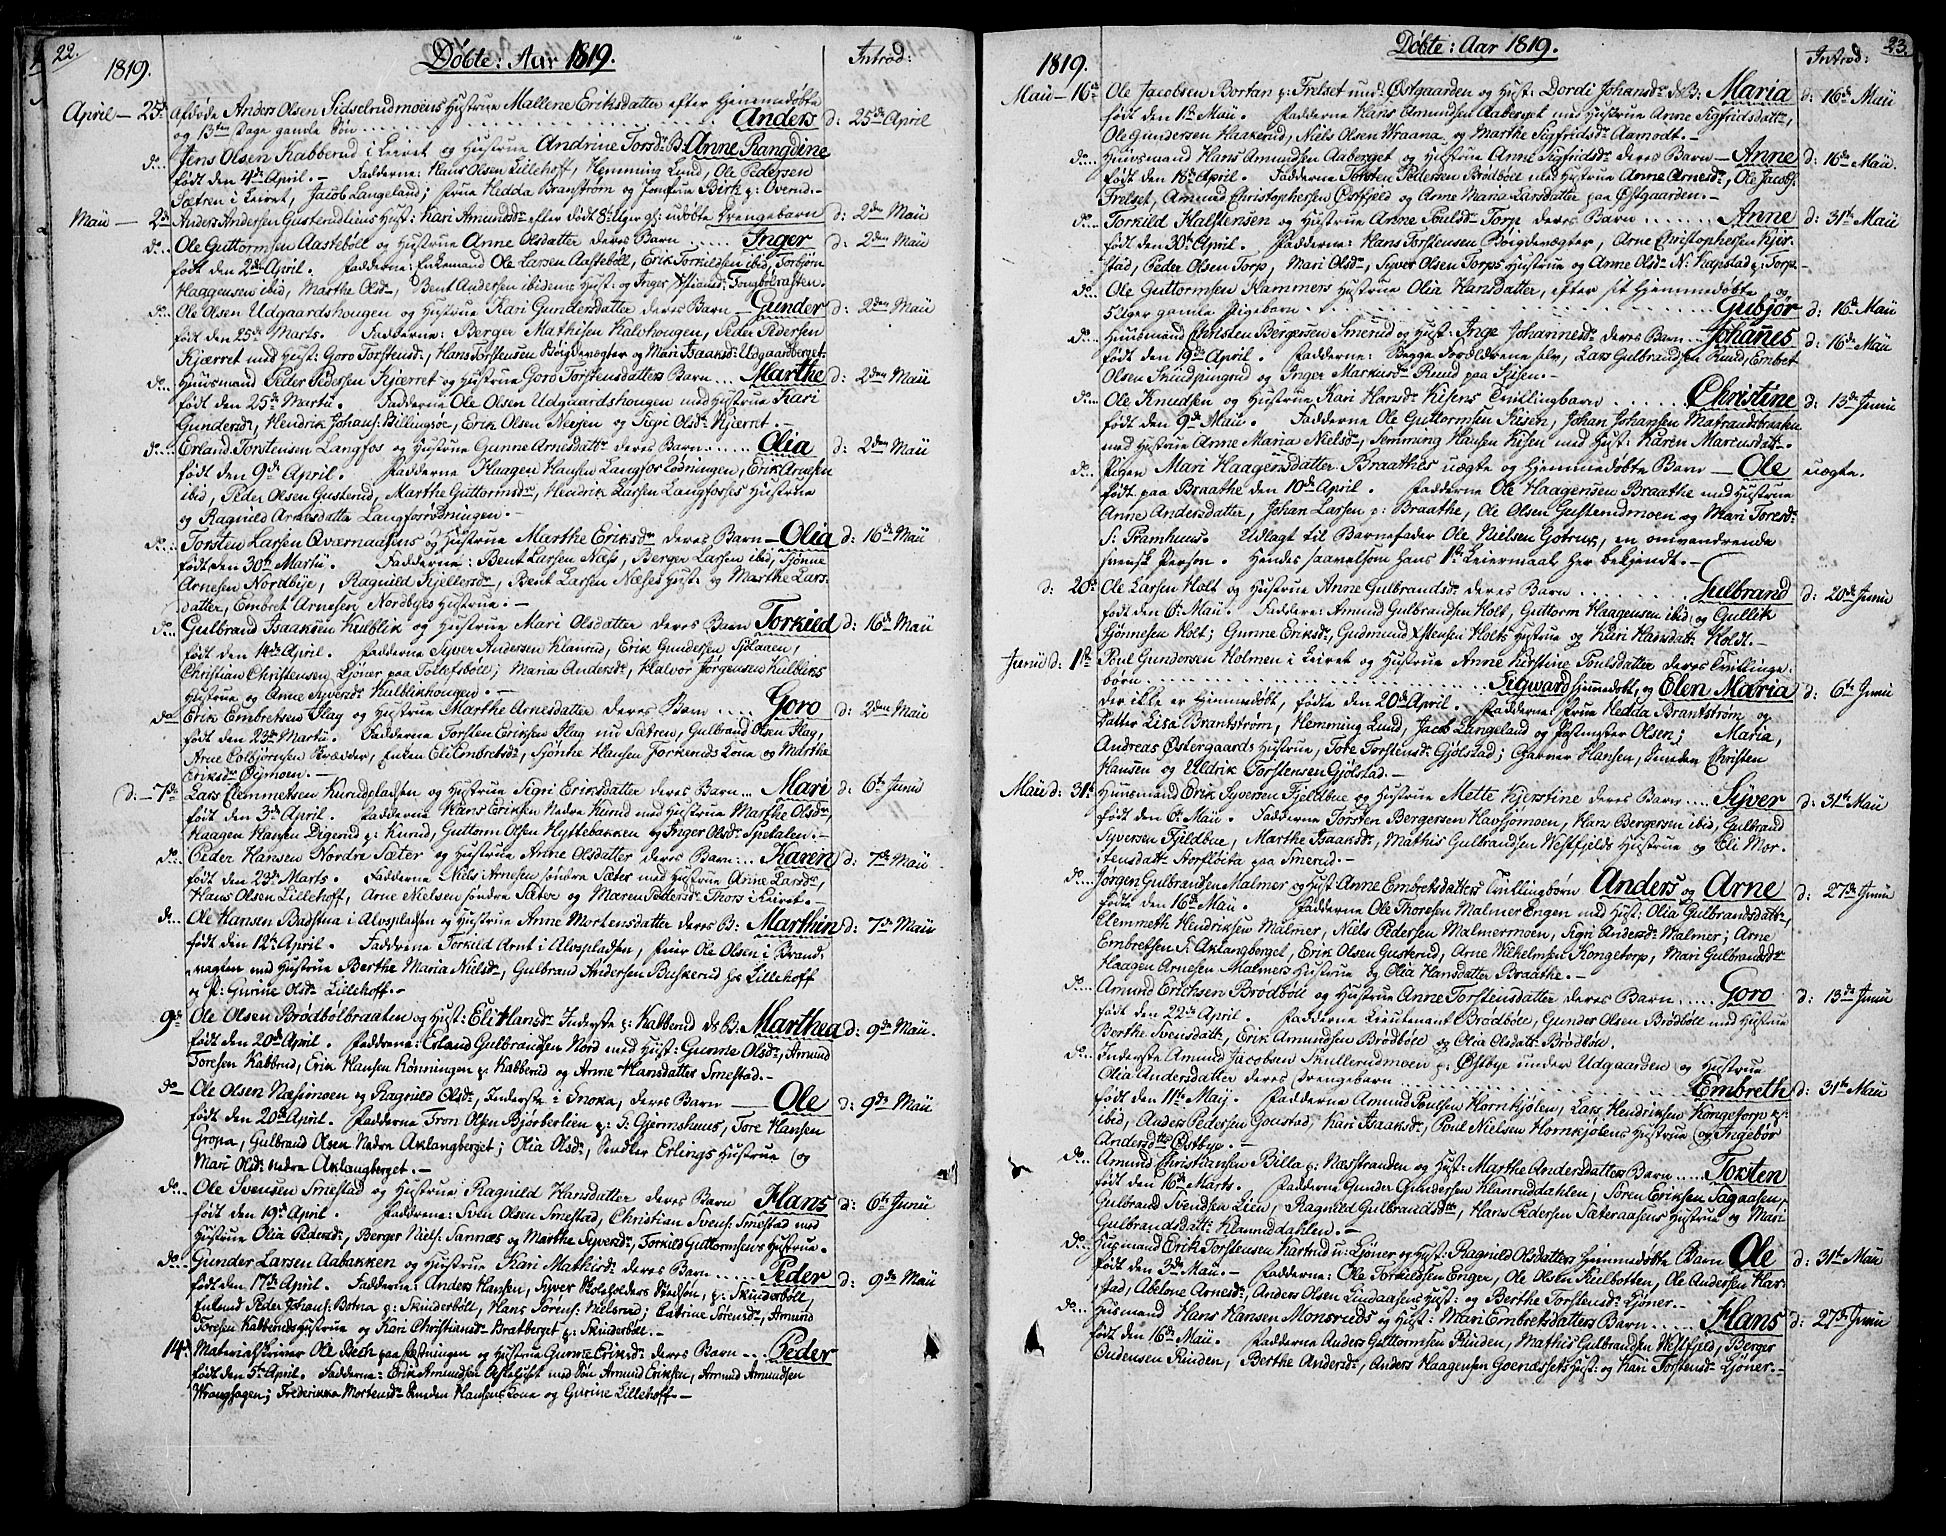 22.
1819.
Döbte: Aar 1819.
Introd:
April – 25de Afdöde Anders Olsen Sidselrudmoens Hustrue Mallene Eriksdatter efter hjemmedöbte
og 13ten Dage gamle Sön Anders d: 25de April
do Jens Olsen Kabberud i Leiret og Hustrue Andrine Torsdr B: Anne Rangdine
födt den 4de April. – Fadderne: Hans Olsen Lillehoff, Hemming Lund, Ole Pedersen
Sætren i Leiret, Jacob Langeland; Frue Hedda Branström og Jomfrue Birk p: Overud. –
Maii – 2den Anders Andersen Gusterudliens Hust: Kari Amundsdr efter födt 8 Uger gl: udöbte Drengebarn d: 2den Maii
do Ole Guttormsen Aasteböll og Hustrue Anne Olsdatter deres Barn Inger d: 2den Maii
födt den 2den April. Fadderne: Enkemand Ole Larsen Aasteböll, Erik Torkildsen ibid, Torbjörn
Haagensen ibid, Marthe Olsdr, Bent Andersen ibidems Hust: og Inger
do Ole Olsen Udgaardshougen og Hustrue Kari Gundersdatter deres Barn – Gunder d: 2den Maii
födt den 25de Marts. Fadderne: Berger Mathisen Kaleshougen, Peder Pedersen
Kjærret med Hust: Goro Torstensdr, Hans Torstensen Böigdevogter og Mari Isaaksdr Udgaardberget.
do Huusmand Peder Pedersen Kjærret og Hustrue Goro Torstensdatters Barn Marthe d: 2den Maii
födt den 25de Martii. Fadderne Ole Olsen Udgaardshougen med Hustrue Kari
Gundersdr, Hendrik Johans: Billingsöe, Erik Olsen Neesen og Sigri Olsdr Kjærret. –
do Erland Torstensen Langfos og Hustrue Gunne Arnesdattr deres Barn Olia d: 2den Maii
födt den 9de April. Fadderne Haagen Hansen Langfos Rödningen, Erik Arnesen
ibid, Peder Olsen Gusterud, Marthe Guttormsdr, Hendrik Larsen Langfosses Hustrue
og Ragnild Arnesdatter Langfosrödningen. –
do Torsten Larsen Overnaasens og Hustrue Marthe Eriksdr deres Barn – Olia d: 16de Maii
födt den 30te Martii. Fadderne: Bent Larsen Næss, Berger Larsen ibid, Tjönne
Arnesen Nordbye, Ragnild Kjellersdr, Bent Larsen Næses Hust: og Marthe Lars-
datter, Embret Arnesen Nordbyes Hustrue. –
do Gulbrand Isaaksen Kulblik og Hustrue Mari Olsdatter deres Barn Torkild d: 16de Maii
födt den 14de April. Fadderne Syver Andersen Klanrud, Erik Gundersen Sjölaaen,
Christian Christensen Ljöner paa Tollefsböll; Maria Andersdr, Halvor Jörgensen Kulbliks
Hustrue og Anne Syversdr Kulblikhougen. –
do Erik Embretsen Flag og Hustrue Marthe Arnesdatter deres Barn Goro d: 2den Maii
födt den 23de Martii. Fadderne Torsten Eriksen Flag nu Sætren, Gulbrand Olsen Flag,
Arne Colbjörnsen Skræder, Enken Eli Embretsdr, Sjönne Hansen Torkeruds Kone og Marthe
Eriksdr Öiemoen. –
d: – 7de Lars Clemmetsen Kundeladsen og Hustrue Sigri Eriksdatter deres Barn Mari d: 6te Junii
födt den 3de April. Fadderne Hans Eriksen Nedre Kurud med Hustrue Marthe Olsdr,
Haagen Hansen Digerud p: Kurud, Guttorm Olsen Hyttebakken og Inger Olsdr Spetalen. –
do Peder Hansen Nordre Sæter og Hustrue Anne Olsdatter deres Barn Karen d: 7de Maii
födt den 23de Marts. Fadderne Niels Arnesen söndre Sæter med Hustrue Anne Larsdr,
Hans Olsen Lillehoff, Arne Nielsen söndre Sæter og Maren Pedersdr Thors Leiret. –
do Ole Hansen Badstua i Alvspladsen og Hustrue Anne Mortensdatter deres B: Marthin d: 7de Maii
födt den 12te April. Fadderne Torkild Arnt i Alvspladsen, Feier Ole Olsen i Brand
vagten med Hustrue Berthe Maria Nielsdr, Gulbrand Andersen Buskerud hos Lillehoff
og P: Gurine Olsdr Lillehoff. –
9de Ole Olsen Brödbölbraaten og Hust: Eli Hansdr Inderste p: Kabberud ds B: Marthea d: 9de Maii.
födt den 20de April. Fadderne: Erland Gulbrandsen Nord med Hust: Gunne Olsdr, Amund
Toresen Kabberud, Erik Hansen Rönningen p: Kabberud og Anne Hansdatter Smestad. –
do Ole Olsen Næsimoen og Ragnild Olsdr, Inderste i Snoka, deres Barn – Ole d: 9de Maii
födt den 20de April. Fadderne Tron Olsen Björberlien p: S: Gjemshuus, Tore Hansen
Gropa, Gulbrand Olsen Nedre Aklangberget; Olia Olsdr, Snedker Erlings Hustrue og
Mari Olsdr nedre Aklangberget. –
do Ole Svensen Smestad og Hustrue Ragnild Hansdatter deres Barn Hans d: 6te Junii
födt den 19de April. Fadderne: Sven Olsen Smestad, Christian Svens: Smestad med
Hustrue Olia Pedersdr, Berger Niels: Sannæs og Marthe Syversdr, Torkild Guttormsens Hustrue.
do Gunder Larsen Aabakken og Hustrue Kari Mathisdr deres Barn Peder d: 9de Maii
födt den 17de April. Fadderne: Anders Hansen, Syver Skoleholders Stedsön, p: Skinderböll
Enkmd Peder Johans: Botna p: Skinderböll, Hans Sörens: Nielsrud; Catrine Sörensdr, Amund
Toresen Kabberuds Hustrue og Kari Christiansdr Bratberget p: Skinderböl. –
14de Materialskriver Ole Beth paa Fæstningen og Hustrue Gunne Eriksdr deres Barn Peder
födt den 5te April. Fadderne: Erik Amundsen med Sön Amund Eriksen, Amund Amundsen
Wranghagen; Frederikke Mortensdr Smeden Hansens Kone og Gurine Lillehoff. –
23.
1819.
Döbte: Aar 1819.
Introd:
Maii – 16de Ole Jacobsen Bortan p: Frelset und: Östgaarden og Hust: Dordi Johansdr ds B: Maria d: 16de Maii
födt den 1ste Maii. Fadderne Hans Amundsen Aaberget med Hustrue Anne Sigfridsdattr,
Ole Gundersen Haakerud, Niels Olsen Wraana og Marthe Sigfridsdr Aamodt. –
do Huusmand Hans Amundsen Aaberget og Hustrue Anne Sigfridsdr deres Barn – Anne d: 16de Maii.
födt den 18de April. Fadderne Torsten Pedersen Brödböll med Hustrue Anne Arnesdr, Ole Jacobs:
Frelset, Amund Christophersen Östfjeld og Anne Maria Larsdatter paa Östgaarden. –
do Torkild Halstensen og Hustrue Anne Poulsdr Torp deres Barn Anne d: 31te Maii
födt den 30te April. Fadderne: Hans Torstensen Böigdevogter, Arne Christophersen Kjer-
stad, Peder Olsen Torp, Mari Olsdr, Syver Olsen Torps Hustrue og Anne Olsdr N: Kagestad p: Torp.
do Ole Guttormsen Kammers Hustrue Olia Hansdatter, efter sit hjemmedöbte og
5 Uger gamle Pigebarn Gubjör d: 16de Maii
do Huusmand Christen Bergersen Smerud og Hust: Inge Johannesdr deres Barn Johanes d: 16de Maii
födt den 19de April. Fadderne: Begge Forældrene selv, Lars Gulbrandsen Ruud, Embret
Olsen Skindpingrud og Inger Markusdr Ruud paa Kisen. –
do Ole Knudsen og Hustrue Kari Hansdr Kisens Tvillingbarn Christine d: 13de Junii
födt den 9de Maii. Fadderne Ole Guttormsen Kisen, Johan Johansen Matraudsbraaten
med Hustrue Anne Maria Nielsdr, Semming Hansen Kisen med Hust: Karen Marcusdattr
do Pigen Mari Haagensdatter Braathes uægte og hjemmedöbte Barn – Ole uægte.
födt paa Braathe den 10de April. Fadderne Ole Haagensen Braathe med Hustrue
Anne Andersdatter, Johan Larsen p: Braathe, Ole Olsen Gusterudmoen og Mari Toresdr
S: Framhuus. Udlagt til Barnefader Ole Nielsen Gotrup, en omvandrende
svensk Person. Hendes saavelsom hans 1ste Leiermaal her bekjendt. –
d: 20de Ole Larsen Holt og Hustrue Anne Gulbrandsdr deres Barn Gulbrand d: 20de Junii
födt den 6te Maii. Faddere: Amund Gulbrandsen Holt, Guttorm Haagensen ibid og Gullik
Sjönnesen Holt; Gunne Eriksdr, Gudmund Estensen Holts Hustrue og Kari Hansdatr Holdt. –
Junii d: 1ste Poul Gundersen Holmen i Leiret og Hustrue Anne Kirstine Poulsdatter deres Tvillinge-
börn Sigward hjemmedöbt, og Elen Maria d: 6te Junii
der ikke er hjemmedöbt, födte den 20de April. Fadderne: Frue Hedda Brantström og
Datter Lisa Brantström, Hemming Lund, Jacob Langeland og Postmester Olsen; Maria,
Andreas Östergaards Hustrue, Tote Torstensdr Gjölstad; Garver Hansen, Smeden Christen
Hansen og Uldrik Torstensen Gjölstad. –
Maii d: 31te Huusmand Erik Syversen Fjeldbue og Hustrue Mette Kjerstine deres Barn Syver d: 31te Maii
födt den 6te Maii. Fadderne Torsten Bergersen Havsjömoen, Hans Bergersen ibid, Gulbrand
Syversen Fjeldbue, Marthe Isaaksdr, Mathis Gulbrandsen Westfjelds Hustrue og Eli Mor-
tensdattr Storslöita paa Smerud. –
do Jörgen Gulbrandsen Malmer og Hust: Anne Embretsdatters Tvillingbörn Anders og Arne d: 27de Junii
födt den 16de Maii. Fadderne Ole Thoresen Malmer Engen med Hust: Olia Gulbrandsdattr,
Clemmeth Hendriksen Malmer, Niels Pedersen Malmermoen, Sigri Andersdr Malmer; Arne
Embretsen S: Aklangberget, Erik Olsen Gusterud, Arne Wilhelmsen Kongetorp, Mari Gulbrandsdr
Haagen Arnesen Malmers Hustrue og Olia Hansdatter Braathe. –
do Amund Erichsen Brödböll og Hustrue Anne Torstensdatter deres Barn Goro d: 13de Junii
födt den 22de April. Fadderne Lieutenant Brödböll, Gunder Olsen Brödböll med Hustrue
Berthe Svensdattr, Erik Amundsen Brödböll og Olia Olsdatr Brödböll.
do Inderste Amund Jacobsen Skullerudmoen p: Östbye under Udgaarden og Hustrue
Olia Andersdatter deres Drengebarn Embreth d: 31te Maii
födt den 11te Maij. Fadderne Amund Poulsen Hornkjölen, Lars Hendriksen Kongetorp p:
ibid, Anders Pedersen Goustad, Kari Isaaksdr, Poul Nielsen Hornkjölens Hustrue og Ingebör
Andersdtr Östbye. –
do Amund Christiansen Billa p: Næsstranden og Hust: Marthe Andersdatters Barn Torsten
födt den 16de Marts. Fadderne Gunder Gundersen Klanruddahlen, Sören Eriksen Sagaasen,
Gulbrand Svendsen Lien, Ragnild Gulbrandsdtr, Hans Pedersen Sæteraasens Hustrue og Mari
Gulbrandsdattr Klanruddahlen. –
do Husmand Erik Torstensen Kartrud u: Ljöner og Hust: Ragnild Olsdatters hjemmedöbte Barn Ole d: 31te Maii
födt den 3de Maii. – Fadderne: Ole Torkildsen Enger, Ole Olsen Kulbotten, Ole Andersen Har-
stad, Abelone Arnesdr, Anders Olsen Lundaasens Hust: og Berthe Torstensdr Ljöner. –
do Husmand Hans Hansen Monsruds og Hust: Mari Embretsdatters Barn Hans d: 27de Junii
födt den 16de Maii. Fadderne Anders Guttormsen Riuden, Mathis Gulbrandsen Westfjeld, Berger
Oudensen Riuden, Berthe Andersdr, Anders Haagensen Goenæsset Hust: og Kari Torstensdr Ljöner. –